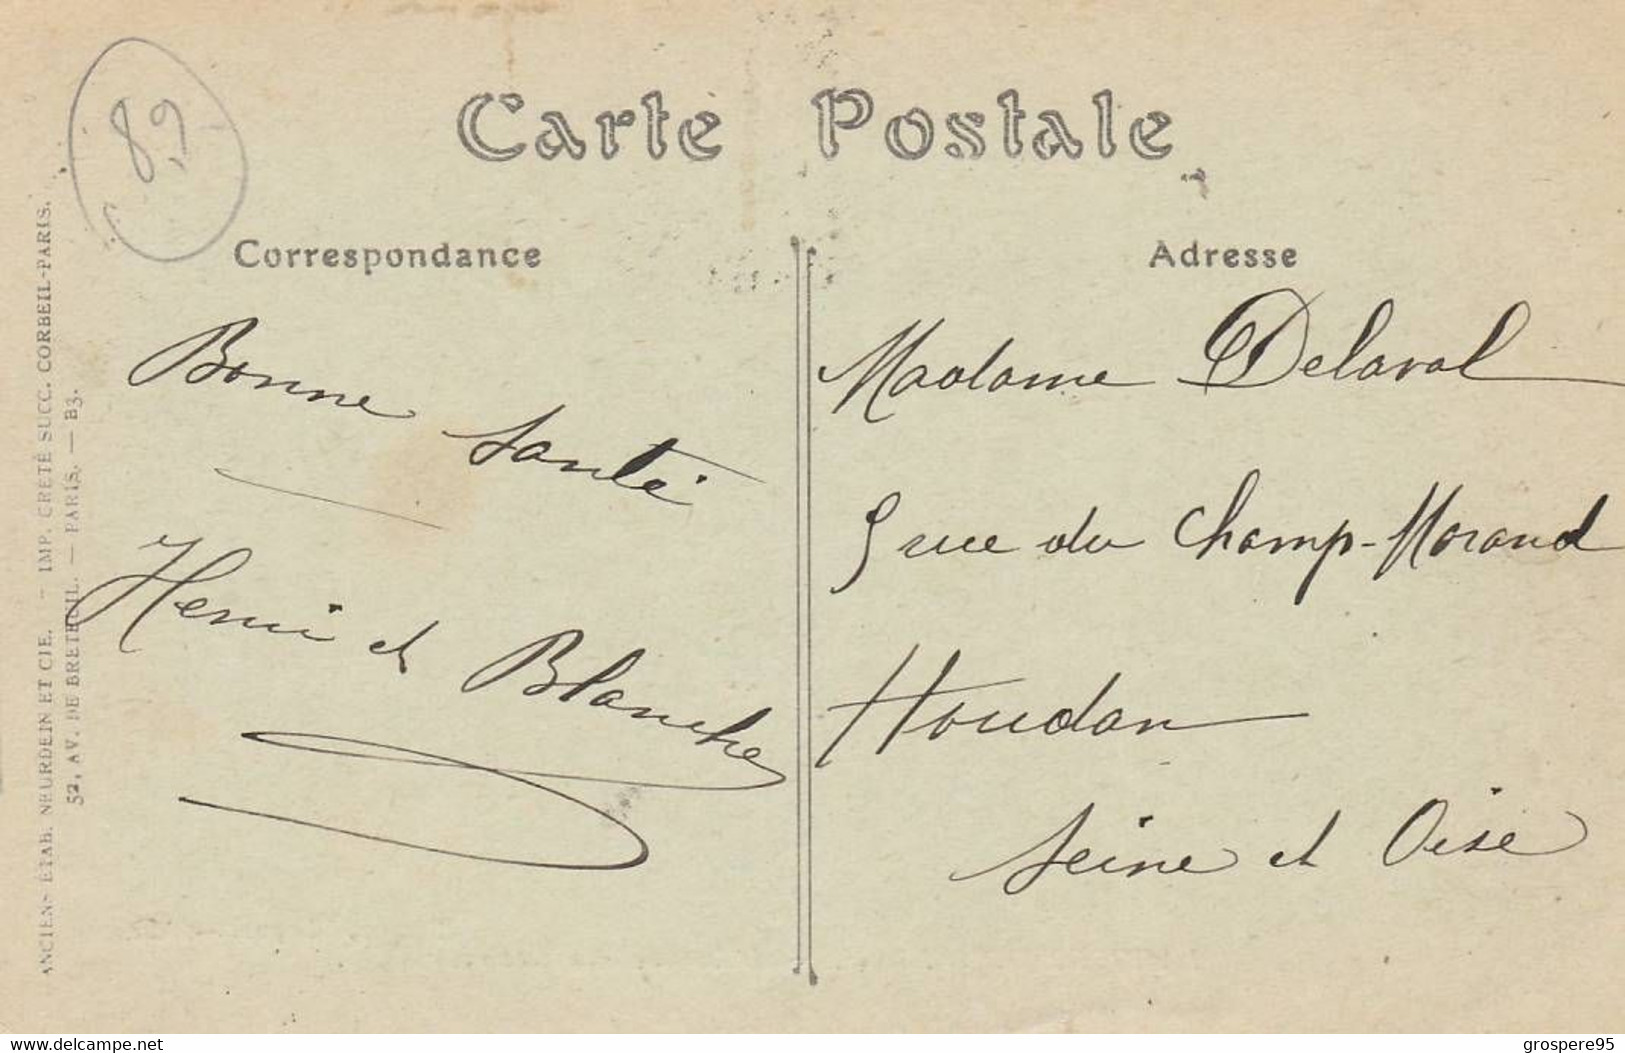 89
Carte Postale
Correspondance
Adresse
Bonne santé
Henri et Blanche
Madame Delaval
9 rue du Champ-Morand
Houdan
Seine et Oise
ANCIENS ÉTAB. NEURDEIN ET CIE. – IMP. CRÉTÉ SUCC. CORBEIL-PARIS.
52, AV. DE BRETEUIL. – PARIS. – B3.
www.delcampe.net
grospere95